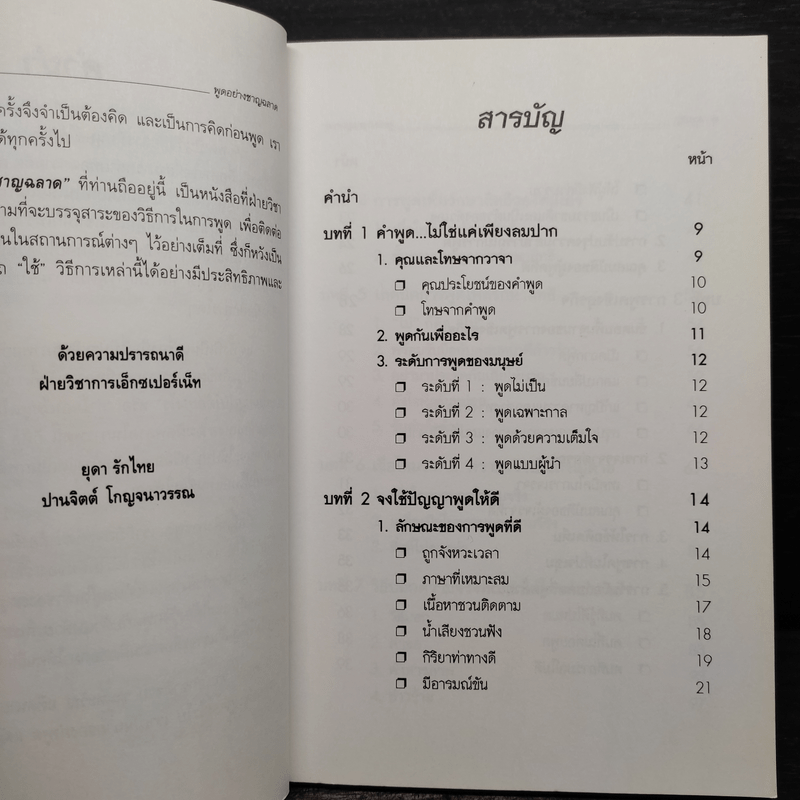 พูดอย่างชาญฉลาด
ครั้งจึงจำเป็นต้องคิด และเป็นการคิดก่อนพูด เรา
ด้ทุกครั้งไป
ชาญฉลาด” ที่ท่านถืออยู่นี้ เป็นหนังสือที่ฝ่ายวิชา
ามที่จะบรรจุสาระของวิธีการในการพูด เพื่อติดต่อ
นในสถานการณ์ต่างๆ ไว้อย่างเต็มที่ ซึ่งก็หวังเป็น
ถ “ใช้” วิธีการเหล่านี้ได้อย่างมีประสิทธิภาพและ
ด้วยความปรารถนาดี
ฝ่ายวิชาการเอ็กซเปอร์เน็ท
ยุดา รักไทย
ปานจิตต์ โกญจนาวรรณ
สารบัญ
หน้า
คำนำ
บทที่ 1 คำพูด...ไม่ใช่แค่เพียงลมปาก 9
1. คุณและโทษจากวาจา 9
❒ คุณประโยชน์ของคำพูด 10
❒ โทษจากคำพูด 10
2. พูดกันเพื่ออะไร 11
3. ระดับการพูดของมนุษย์ 12
❒ ระดับที่ 1 : พูดไม่เป็น 12
❒ ระดับที่ 2 : พูดเฉพาะกาล 12
❒ ระดับที่ 3 : พูดด้วยความเต็มใจ 12
❒ ระดับที่ 4 : พูดแบบผู้นำ 13
บทที่ 2 จงใช้ปัญญาพูดให้ดี 14
1. ลักษณะของการพูดที่ดี 14
❒ ถูกจังหวะเวลา 14
❒ ภาษาที่เหมาะสม 15
❒ เนื้อหาชวนติดตาม 17
❒ น้ำเสียงชวนฟัง 18
❒ กิริยาท่าทางดี 19
❒ มีอารมณ์ขัน 21